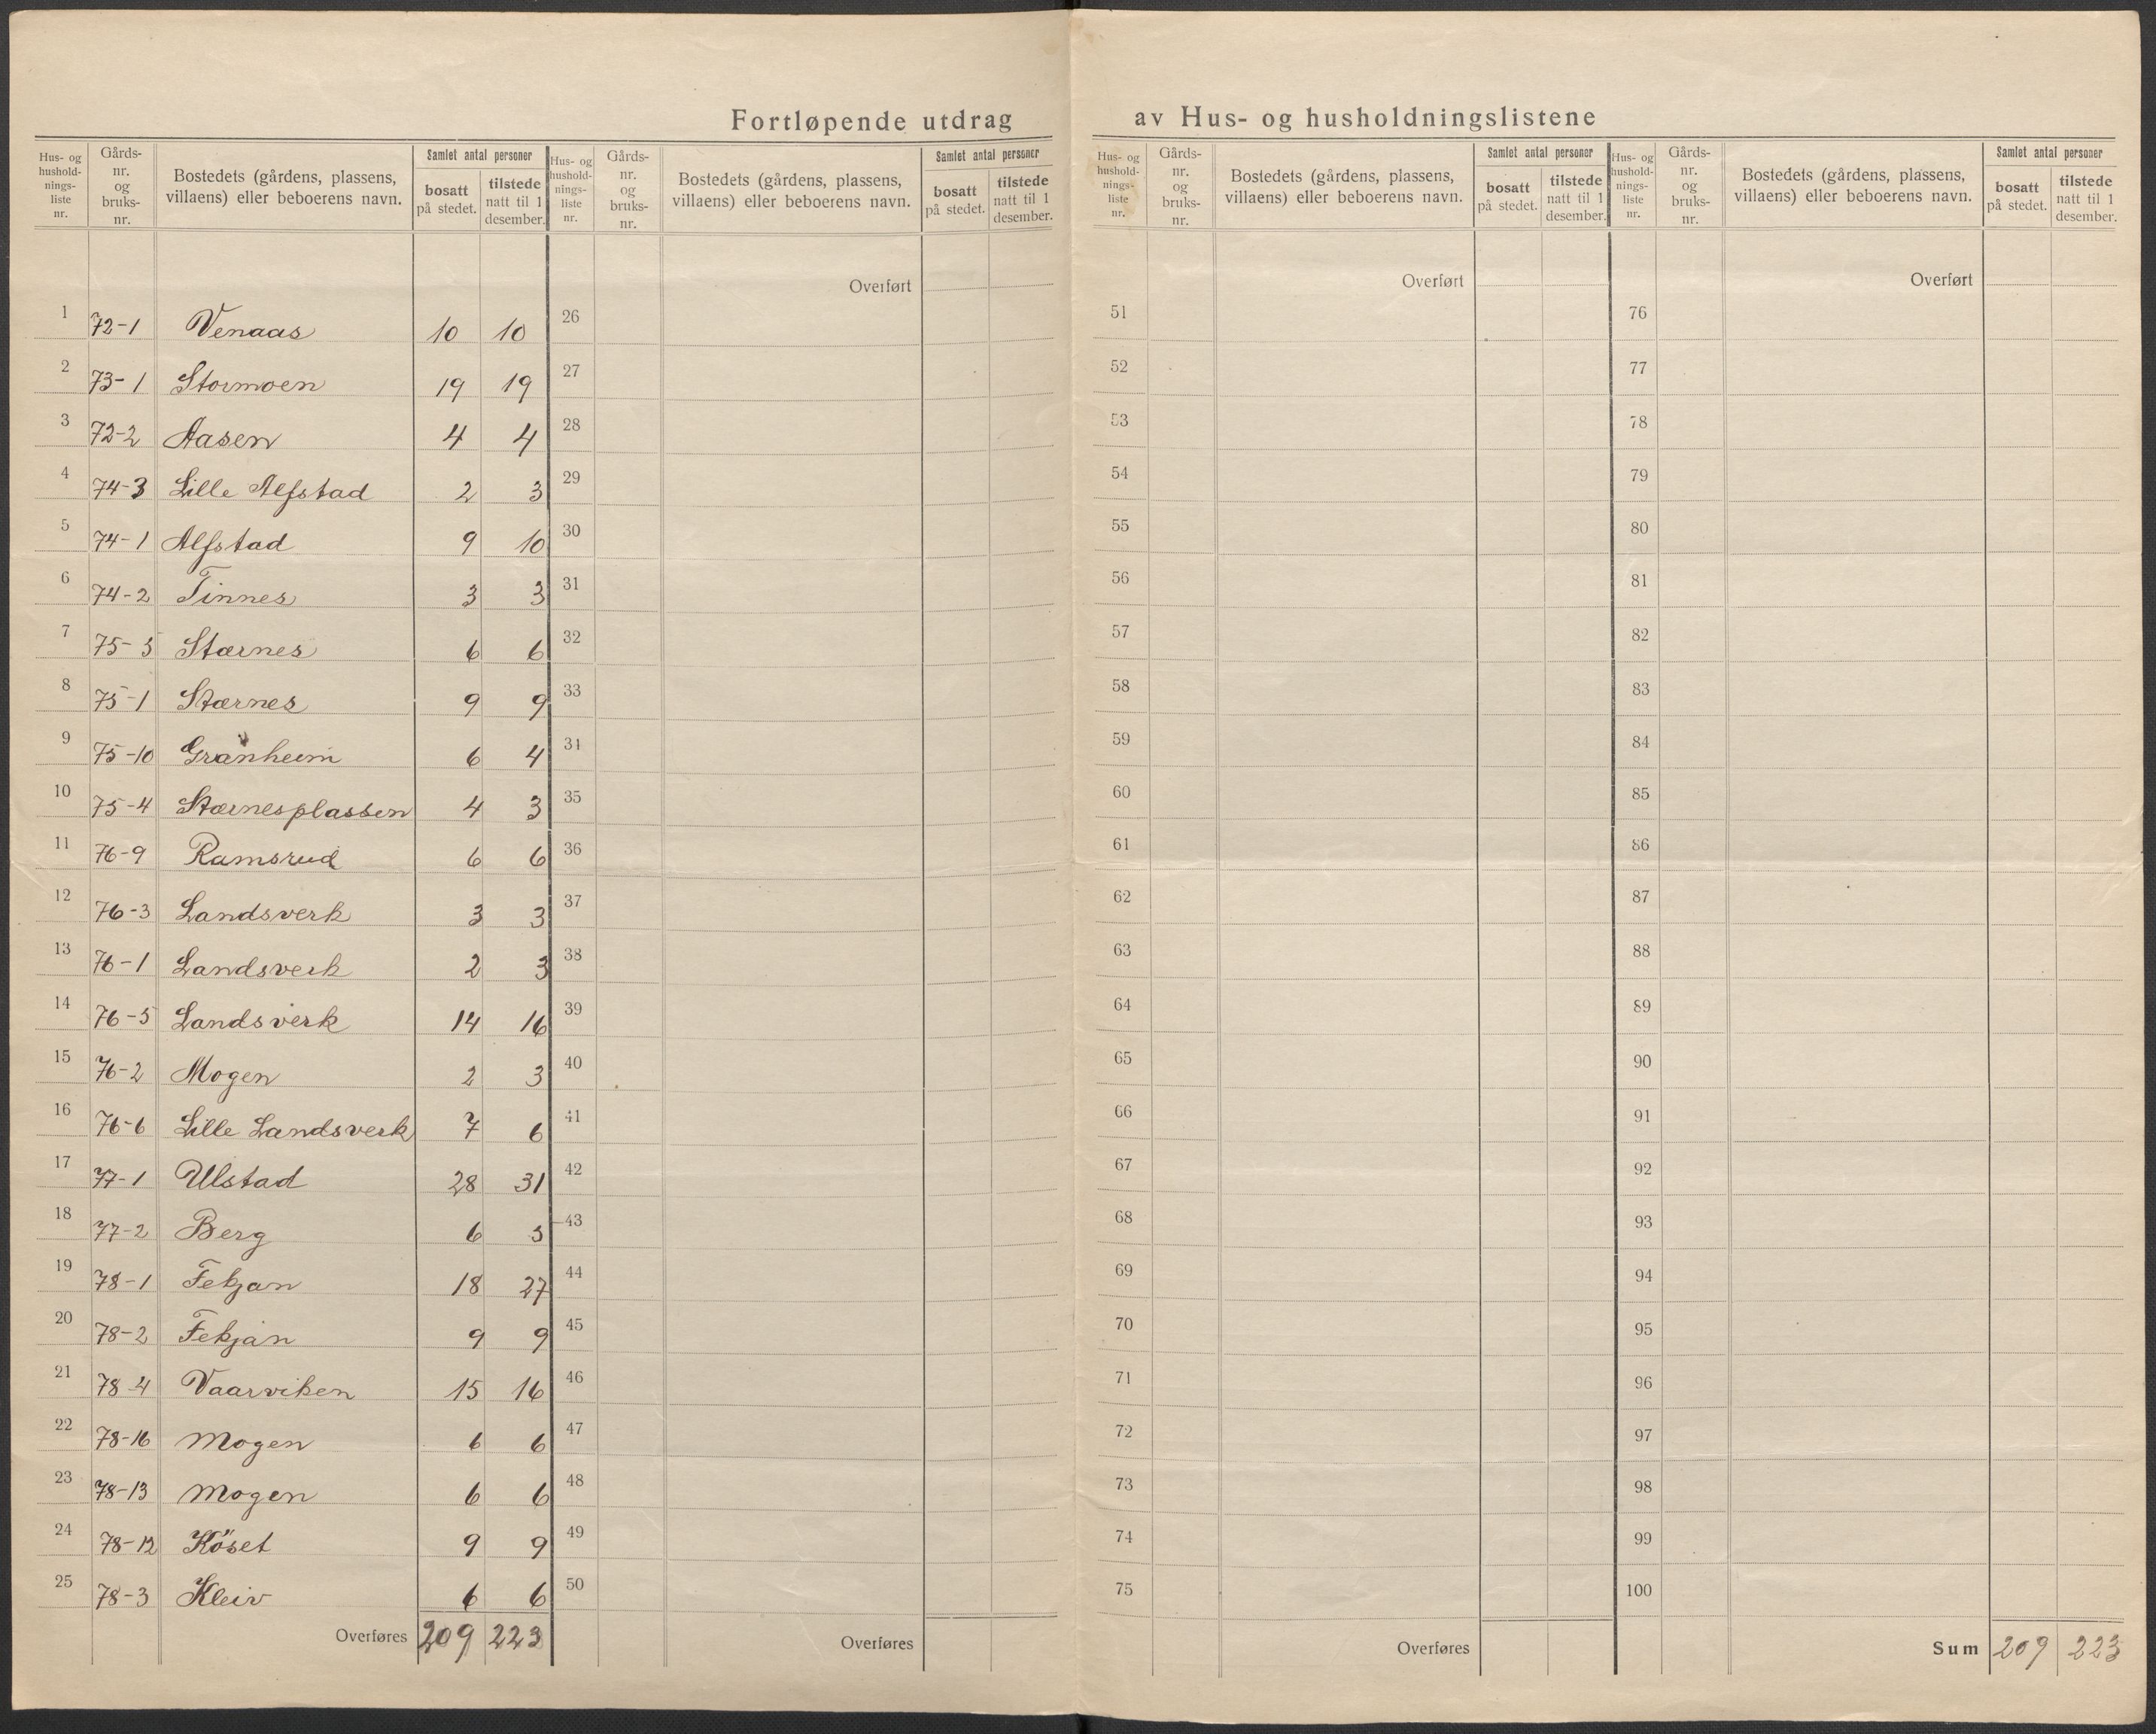 Fortløpende utdrag av Hus- og husholdningslistene
Hus- og hushold-nings-liste nr. Gårds-nr. og bruks-nr. Bostedets (gårdens, plassens, villaens) eller beboerens navn. Samlet antal personer bosatt på stedet. tilstede natt til 1 desember.
Hus- og hushold-nings-liste nr. Gårds-nr. og bruks-nr. Bostedets (gårdens, plassens, villaens) eller beboerens navn. Samlet antal personer bosatt på stedet. tilstede natt til 1 desember.
Hus- og hushold-nings-liste nr. Gårds-nr. og bruks-nr. Bostedets (gårdens, plassens, villaens) eller beboerens navn. Samlet antal personer bosatt på stedet. tilstede natt til 1 desember.
Hus- og hushold-nings-liste nr. Gårds-nr. og bruks-nr. Bostedets (gårdens, plassens, villaens) eller beboerens navn. Samlet antal personer bosatt på stedet. tilstede natt til 1 desember.
Overført Overført Overført
1 72-1 Venaas 10 10 26 51 76
2 73-1 Stormoen 19 19 27 52 77
3 72-2 Aasen 4 4 28 53 78
4 74-3 Lille Alfstad 2 3 29 54 79
5 74-1 Alfstad 9 10 30 55 80
6 74-2 Tinnes 3 3 31 56 81
7 75-5 Stærnes 6 6 32 57 82
8 75-1 Stærnes 9 9 33 58 83
9 75-10 Granheim 6 4 34 59 84
10 75-4 Stærnesplassen 4 3 35 60 85
11 76-9 Ramsrud 6 6 36 61 86
12 76-3 Landsverk 3 3 37 62 87
13 76-1 Landsverk 2 3 38 63 88
14 76-5 Landsverk 14 16 39 64 89
15 76-2 Mogen 2 3 40 65 90
16 76-6 Lille Landsverk 7 6 41 66 91
17 77-1 Ulstad 28 31 42 67 92
18 77-2 Berg 6 5 43 68 93
19 78-1 Fekjan 18 27 44 69 94
20 78-2 Fekjan 9 9 45 70 95
21 78-4 Vaarviken 15 16 46 71 96
22 78-16 Mogen 6 6 47 72 97
23 78-13 Mogen 6 6 48 73 98
24 78-12 Köset 9 9 49 74 99
25 78-3 Kleiv 6 6 50 75 100
Overføres 209 223 Overføres Overføres Sum 209 223